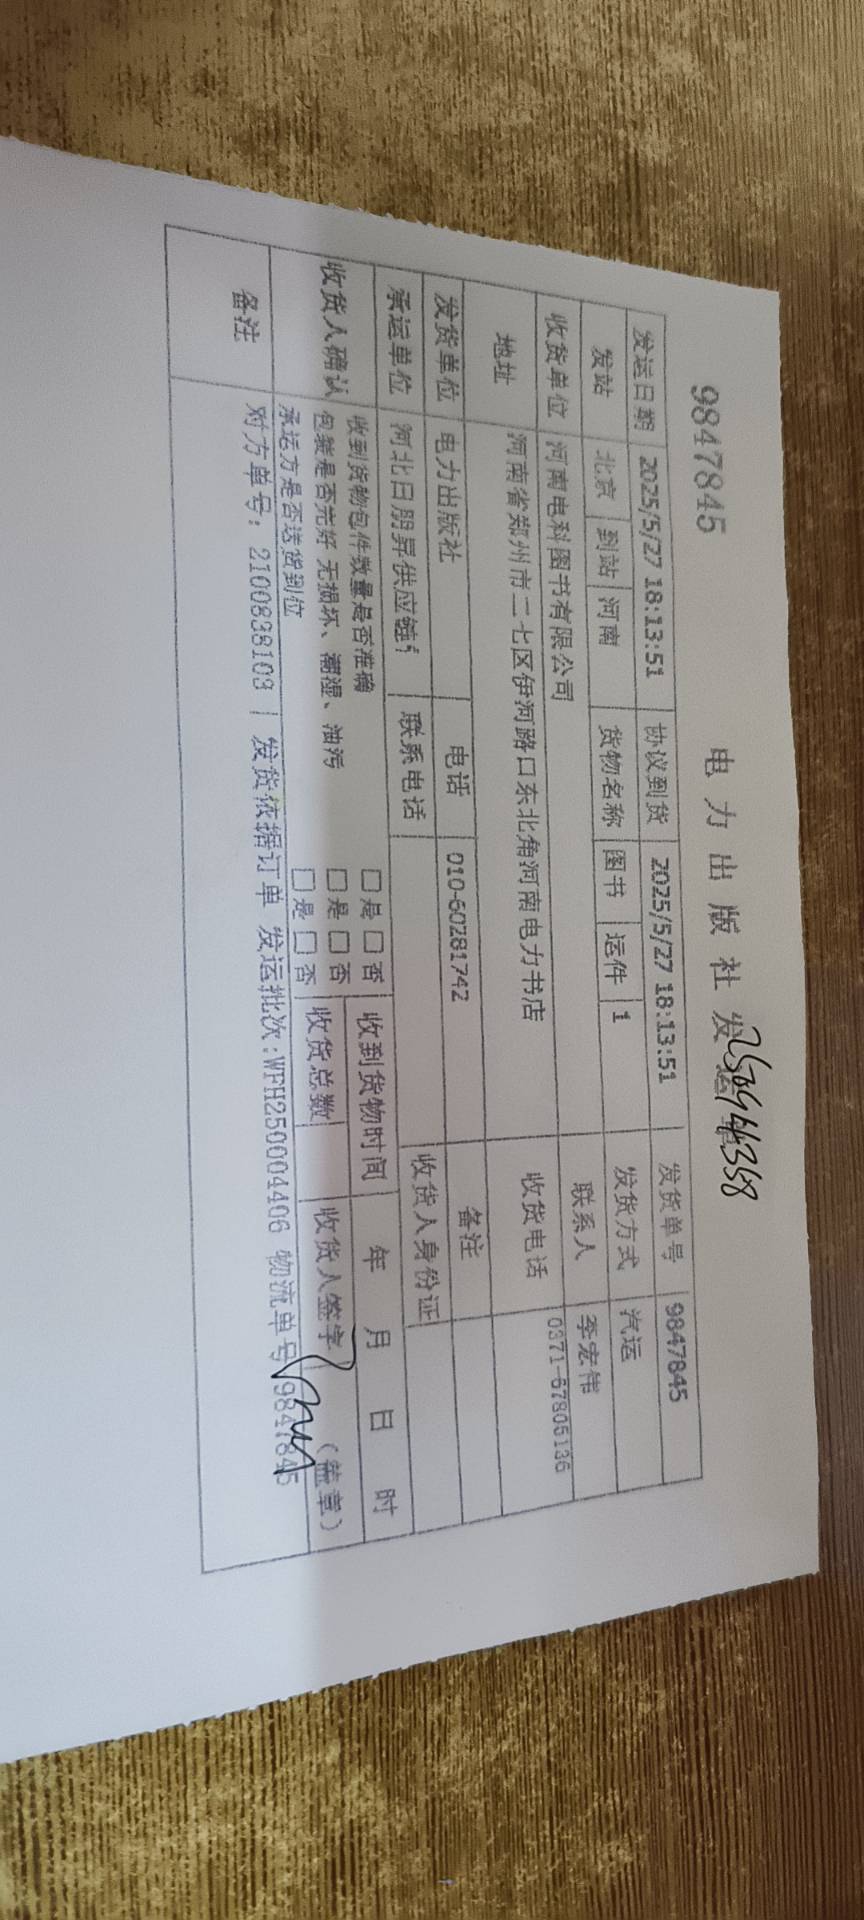 9847845
电力出版社发运单
发运日期 2025/5/27 18:13:51 协议到货 2025/5/27 18:13:51 发货单号 9847845
发站 北京 到站 河南 货物名称 图书 运件 1 发货方式 汽运
收货单位 河南电科图书有限公司 联系人 李宏伟
地址 河南省郑州市二七区伊河路口东北角河南电力书店 收货电话 0371-67805136
发货单位 电力出版社 电话 010-60281742 备注
承运单位 河北日朋昇供应链 联系电话 收货人身份证
收货人确认 收到货物包件数量是否准确 □是□否 收到货物时间 年 月 日 时
包装是否完好 无损坏、潮湿、油污 □是□否 收货总数 收货人签字 (盖章)
承运方是否送货到位 □是□否
备注 对方单号：2100838103 | 发货依据订单 发运批次:WFH250004406 物流单号 9847845